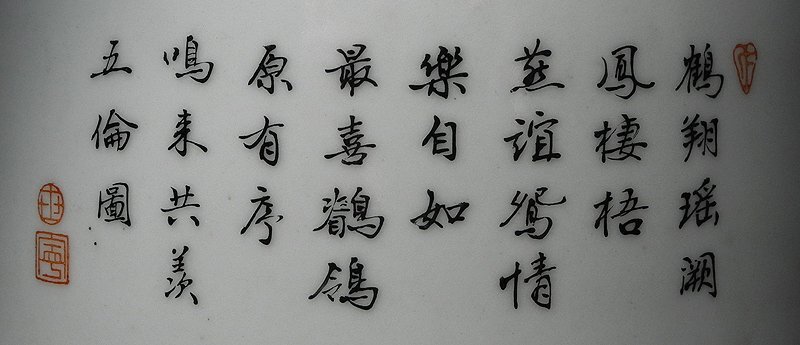 鶴翔瑶阙
鳳棲梧
燕誼鴛情
樂自如
最喜鶺鴒
原有序
鳴来共羡
五倫圖